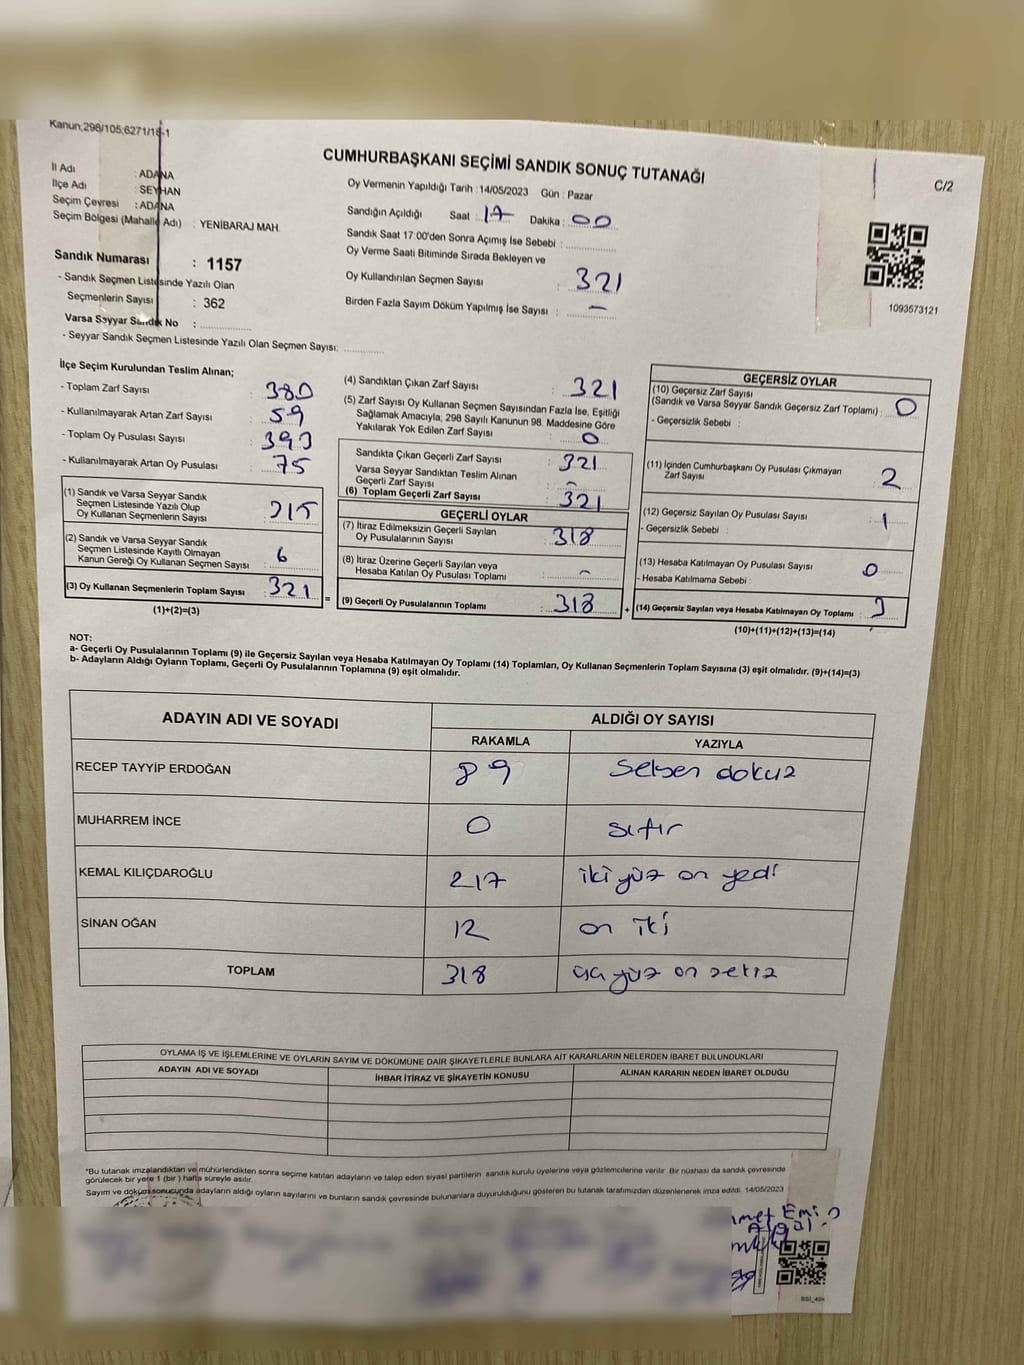 Kanun;298/105;6271/18-1
CUMHURBAŞKANI SEÇİMİ SANDIK SONUÇ TUTANAĞI
C/2
İl Adı : ADANA
İlçe Adı : SEYHAN
Seçim Çevresi : ADANA
Seçim Bölgesi (Mahalle Adı) : YENİBARAJ MAH.
Sandık Numarası : 1157
- Sandık Seçmen Listesinde Yazılı Olan
Seçmenlerin Sayısı : 362
Varsa Seyyar Sandık No :
- Seyyar Sandık Seçmen Listesinde Yazılı Olan Seçmen Sayısı:
Oy Vermenin Yapıldığı Tarih : 14/05/2023 Gün : Pazar
Sandığın Açıldığı Saat : 17 Dakika : 00
Sandık Saat 17:00'den Sonra Açımış İse Sebebi :
Oy Verme Saati Bitiminde Sırada Bekleyen ve
Oy Kullandırılan Seçmen Sayısı : 321
Birden Fazla Sayım Döküm Yapılmış İse Sayısı : —
1093573121
İlçe Seçim Kurulundan Teslim Alınan;
- Toplam Zarf Sayısı : 380
- Kullanılmayarak Artan Zarf Sayısı : 59
- Toplam Oy Pusulası Sayısı : 393
- Kullanılmayarak Artan Oy Pusulası : 75
(1) Sandık ve Varsa Seyyar Sandık
Seçmen Listesinde Yazılı Olup
Oy Kullanan Seçmenlerin Sayısı : 315
(2) Sandık ve Varsa Seyyar Sandık
Seçmen Listesinde Kayıtlı Olmayan
Kanun Gereği Oy Kullanan Seçmen Sayısı : 6
(3) Oy Kullanan Seçmenlerin Toplam Sayısı : 321
(1)+(2)=(3)
(4) Sandıktan Çıkan Zarf Sayısı : 321
(5) Zarf Sayısı Oy Kullanan Seçmen Sayısından Fazla İse, Eşitliği
Sağlamak Amacıyla; 298 Sayılı Kanunun 98. Maddesine Göre
Yakılarak Yok Edilen Zarf Sayısı : 0
Sandıkta Çıkan Geçerli Zarf Sayısı : 321
Varsa Seyyar Sandıktan Teslim Alınan
Geçerli Zarf Sayısı : -
(6) Toplam Geçerli Zarf Sayısı : 321
GEÇERLİ OYLAR
(7) İtiraz Edilmeksizin Geçerli Sayılan
Oy Pusulalarının Sayısı : 318
(8) İtiraz Üzerine Geçerli Sayılan veya
Hesaba Katılan Oy Pusulası Toplamı : -
= (9) Geçerli Oy Pusulalarının Toplamı : 318
GEÇERSİZ OYLAR
(10) Geçersiz Zarf Sayısı
(Sandık ve Varsa Seyyar Sandık Geçersiz Zarf Toplamı) : 0
- Geçersizlik Sebebi :
(11) İçinden Cumhurbaşkanı Oy Pusulası Çıkmayan
Zarf Sayısı 2
(12) Geçersiz Sayılan Oy Pusulası Sayısı : 1
- Geçersizlik Sebebi :
(13) Hesaba Katılmayan Oy Pusulası Sayısı : 0
- Hesaba Katılmama Sebebi :
+ (14) Geçersiz Sayılan veya Hesaba Katılmayan Oy Toplamı : 3
(10)+(11)+(12)+(13)=(14)
NOT:
a- Geçerli Oy Pusulalarının Toplamı (9) ile Geçersiz Sayılan veya Hesaba Katılmayan Oy Toplamı (14) Toplamları, Oy Kullanan Seçmenlerin Toplam Sayısına (3) eşit olmalıdır. (9)+(14)=(3)
b- Adayların Aldığı Oyların Toplamı, Geçerli Oy Pusulalarının Toplamına (9) eşit olmalıdır.
ADAYIN ADI VE SOYADI ALDIĞI OY SAYISI
RAKAMLA YAZIYLA
RECEP TAYYİP ERDOĞAN 89 Seksen dokuz
MUHARREM İNCE 0 sıfır
KEMAL KILIÇDAROĞLU 217 iki yüz on yedi
SİNAN OĞAN 12 on iki
TOPLAM 318 üç yüz on sekiz
OYLAMA İŞ VE İŞLEMLERİNE VE OYLARIN SAYIM VE DÖKÜMÜNE DAİR ŞİKAYETLERLE BUNLARA AİT KARARLARIN NELERDEN İBARET BULUNDUKLARI
ADAYIN ADI VE SOYADI İHBAR İTİRAZ VE ŞİKAYETİN KONUSU ALINAN KARARIN NEDEN İBARET OLDUĞU
*Bu tutanak imzalandıktan ve mühürlendikten sonra seçime katılan adayların ve talep eden siyasi partilerin sandık kurulu üyelerine veya gözlemcilerine verilir. Bir nüshası da sandık çevresinde
görülecek bir yere 1 (bir ) hafta süreyle asılır.
Sayım ve döküm sonucunda adayların aldığı oyların sayılarını ve bunların sandık çevresinde bulunanlara duyurulduğunu gösteren bu tutanak tarafımızdan düzenlenerek imza edildi. 14/05/2023